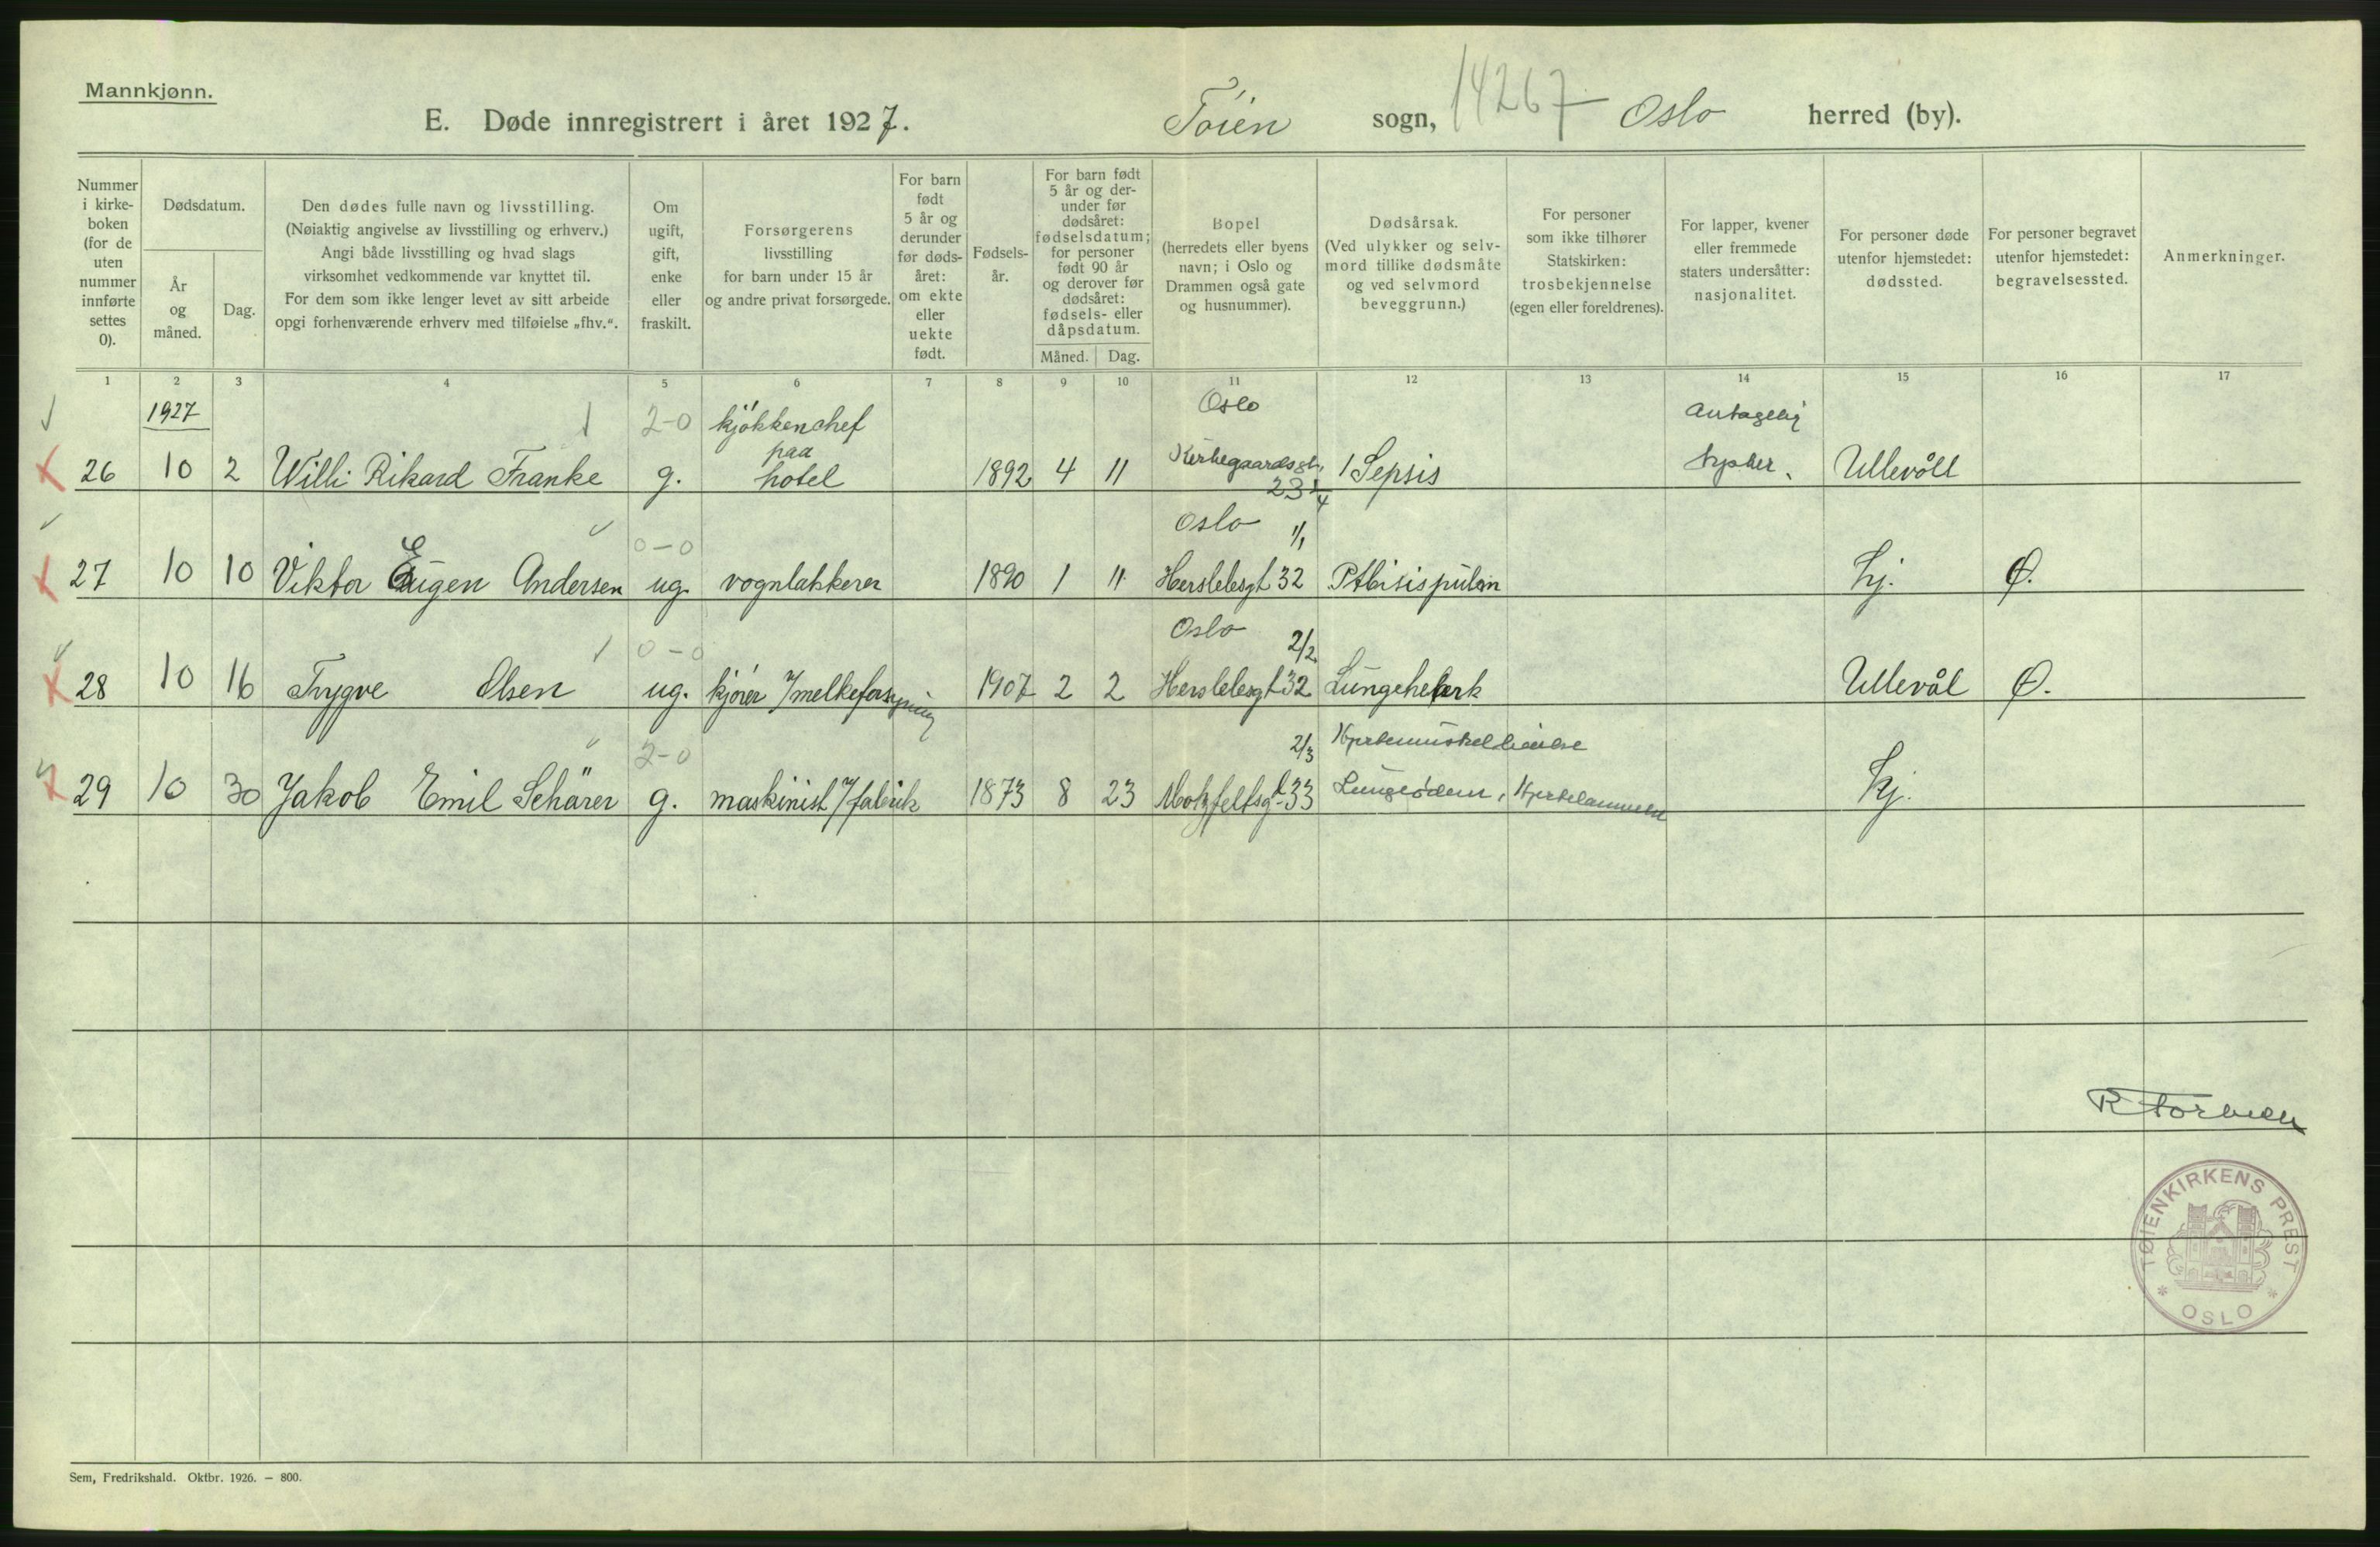 Mannkjønn.
E. Døde innregistrert i året 1927. Töien sogn, 14267 Oslo herred (by).
Nummer i kirke- boken (for de uten nummer innførte settes 0).
Dødsdatum.
År og måned.
Dag.
Den dødes fulle navn og livsstilling.
(Nøiaktig angivelse av livsstilling og erhverv.)
Angi både livsstilling og hvad slags
virksomhet vedkommende var knyttet til.
For dem som ikke lenger levet av sitt arbeide
opgi forhenværende erhverv med tilføielse „fhv.“.
Om ugift, gift, enke eller fraskilt.
Forsørgerens
livsstilling
for barn under 15 år
og andre privat forsørgede.
For barn født 5 år og derunder før døds- året: om ekte eller uekte født.
Fødsels- år.
For barn født 5 år og der- under før dødsåret: fødselsdatum; for personer født 90 år og derover før dødsåret: fødsels- eller dåpsdatum.
Måned. Dag.
Bopel
(herredets eller byens
navn; i Oslo og
Drammen også gate
og husnummer).
Dødsårsak.
(Ved ulykker og selv-
mord tillike dødsmåte
og ved selvmord
beveggrunn.)
For personer
som ikke tilhører
Statskirken:
trosbekjennelse
(egen eller foreldrenes).
For lapper, kvener
eller fremmede
staters undersåtter:
nasjonalitet.
For personer døde
utenfor hjemstedet:
dødssted.
For personer begravet
utenfor hjemstedet:
begravelsessted.
Anmerkninger.
1 2 3 4 5 6 7 8 9 10 11 12 13 14 15 16 17
1927 2-0 kjøkkenchef Oslo Antagelig
paa
26 10 2 Willi Rikard Franke g. hotel 1892 4 11 Kirkegaardsgt. 23 Sepsis tysker. Ullevåll
0-0 Oslo 1/1
27 10 10 Viktor Eugen Andersen ug. vognlakkerer 1890 1 11 Herslebsgt 32 Ptbisis pulm hj. Ø.
0-0 Oslo 2/2
28 10 16 Trygve Olsen ug. kjører i/melkeforsyning 1907 2 2 Herslebsgt 32 Ullevål Ø.
2-0 2/3
29 10 30 Jakob Emil Schärer g. maskinist i/fabrik 1873 8 23 Motzfeltsgt 33 Lungeødem, hj.
TØIENKIRKENS PREST
* OSLO *
Sem, Fredrikshald. Oktbr. 1926. — 800.